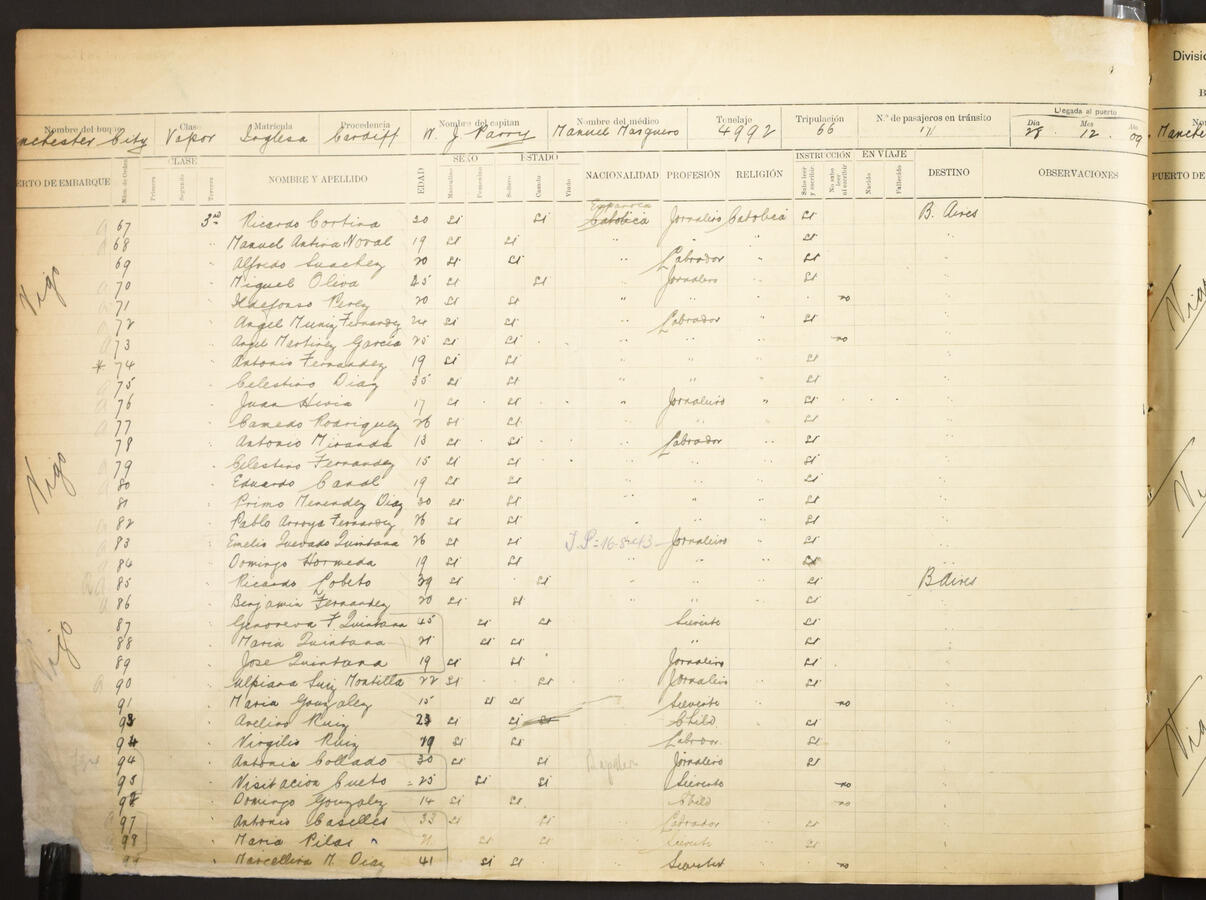 Nombre del buque Clase Matrícula Procedencia Nombre del capitan Nombre del médico Tonelaje Tripulación N.º de pasajeros en tránsito Llegada al puerto
nchester City Vapor Inglesa Cardiff W. J. Parry Manuel Masquero 4992 66 Dia 28 Mes 12 Año 09
ERTO DE EMBARQUE Núm. de Orden CLASE Primera Segunda Tercera NOMBRE Y APELLIDO EDAD SEXO Masculino Femenino ESTADO Soltero Casado Viudo NACIONALIDAD PROFESIÓN RELIGIÓN INSTRUCCIÓN Sabe leer y escribir No sabe leer ni escribir EN VIAJE Nacido Fallecido DESTINO OBSERVACIONES
67 3ra Ricardo Cortina 20 si si Jornalero Catolica si B. Aires
68 Manuel Antina Noval 19 si si " " si
69 Alfredo Sanchez 20 si si " Labrador " si
70 Miguel Oliva 45 si si Jornalero si
71 Ildefonso Perez 20 si si " " no
72 Angel Muniz Fernandez 24 si si " Labrador " si
73 Angel Martinez Garcia 25 si si " " no
* 74 Antonio Fernandez 19 si si " " si
75 Celestino Diaz 35 si si " " " si
76 Juan Hevia 17 si si " Jornalero " si
77 Rodriguez 26 si si " si
78 Antonio Miranda 13 si si Labrador " si
79 Celestino Fernandez 15 si si " si
80 Eduardo Canal 19 si si " " si
81 Primo Menendez Diaz 30 si si " " si
82 Pablo Arroyo Fernandez 26 si si " " si
83 Emelio Quevado Quintana 26 si si Jornalero " si
84 Domingo Hormeda 19 si si " " si
85 Ricardo Lobeto 39 si si " " si B Aires
86 Benjamin Fernandez 20 si si " " si
87 Genoveva F Quintana 45 si si Sirviente si
88 Maria Quintana 21 si si " si
89 Jose Quintana 19 si si Jornalero si
90 Montilla 22 si si Jornalero si
91 Maria Gonzalez 15 si si Sirviente no
93 Avelino Ruiz 23 si si Child si
94 Virgilio Ruiz 19 si si Labrador si
94 Antonio Collado 30 si si Jornalero si
95 Visitacion Cueto 25 si si Sirviente no
Domingo Gonzalez 14 si si Child no
97 Antonio Caselles 33 si si Labrador si
98 Maria Pilar 21 si si Sirviente si
99 Marcellina M. Diaz 41 si si no
Vigo
Vigo
Vigo
Divisi
Manche
PUERTO DE